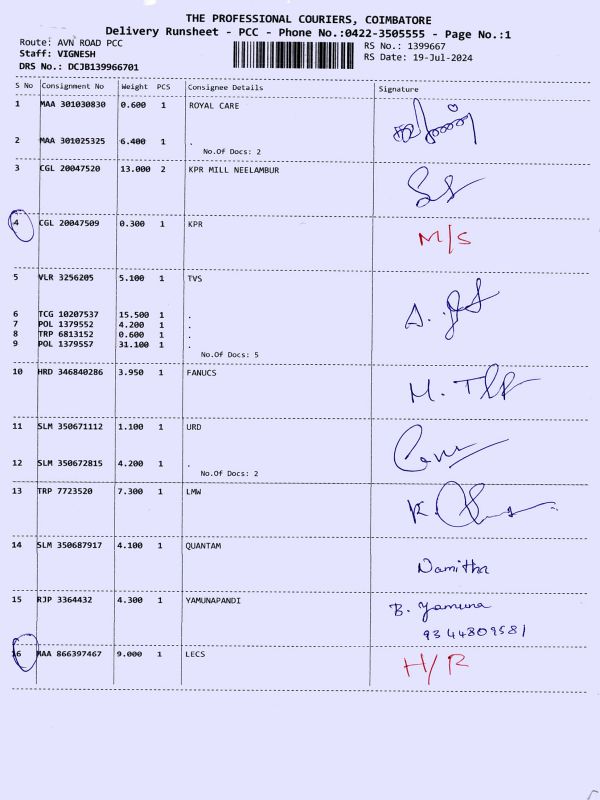 THE PROFESSIONAL COURIERS, COIMBATORE
Delivery Runsheet - PCC - Phone No.:0422-3505555 - Page No.:1
Route: AVN ROAD PCC
RS No.: 1399667
Staff: VIGNESH
RS Date: 19-Jul-2024
DRS No.: DCJB139966701
S No Consignment No Weight PCS Consignee Details Signature
1 MAA 301030830 0.600 1 ROYAL CARE
2 MAA 301025325 6.400 1 .
No.Of Docs: 2
3 CGL 20047520 13.000 2 KPR MILL NEELAMBUR
4 CGL 20047509 0.300 1 KPR
M/S
5 VLR 3256205 5.100 1 TVS
6 TCG 10207537 15.500 1 .
7 POL 1379552 4.200 1 .
8 TRP 6813152 0.600 1 .
9 POL 1379557 31.100 1 .
No.Of Docs: 5
10 HRD 346840286 3.950 1 FANUCS
11 SLM 350671112 1.100 1 URD
12 SLM 350672815 4.200 1 .
No.Of Docs: 2
13 TRP 7723520 7.300 1 LMW
14 SLM 350687917 4.100 1 QUANTAM
Namitha
15 RJP 3364432 4.300 1 YAMUNAPANDI
B. Yamuna
9344809581
16 MAA 866397467 9.000 1 LECS
H/R